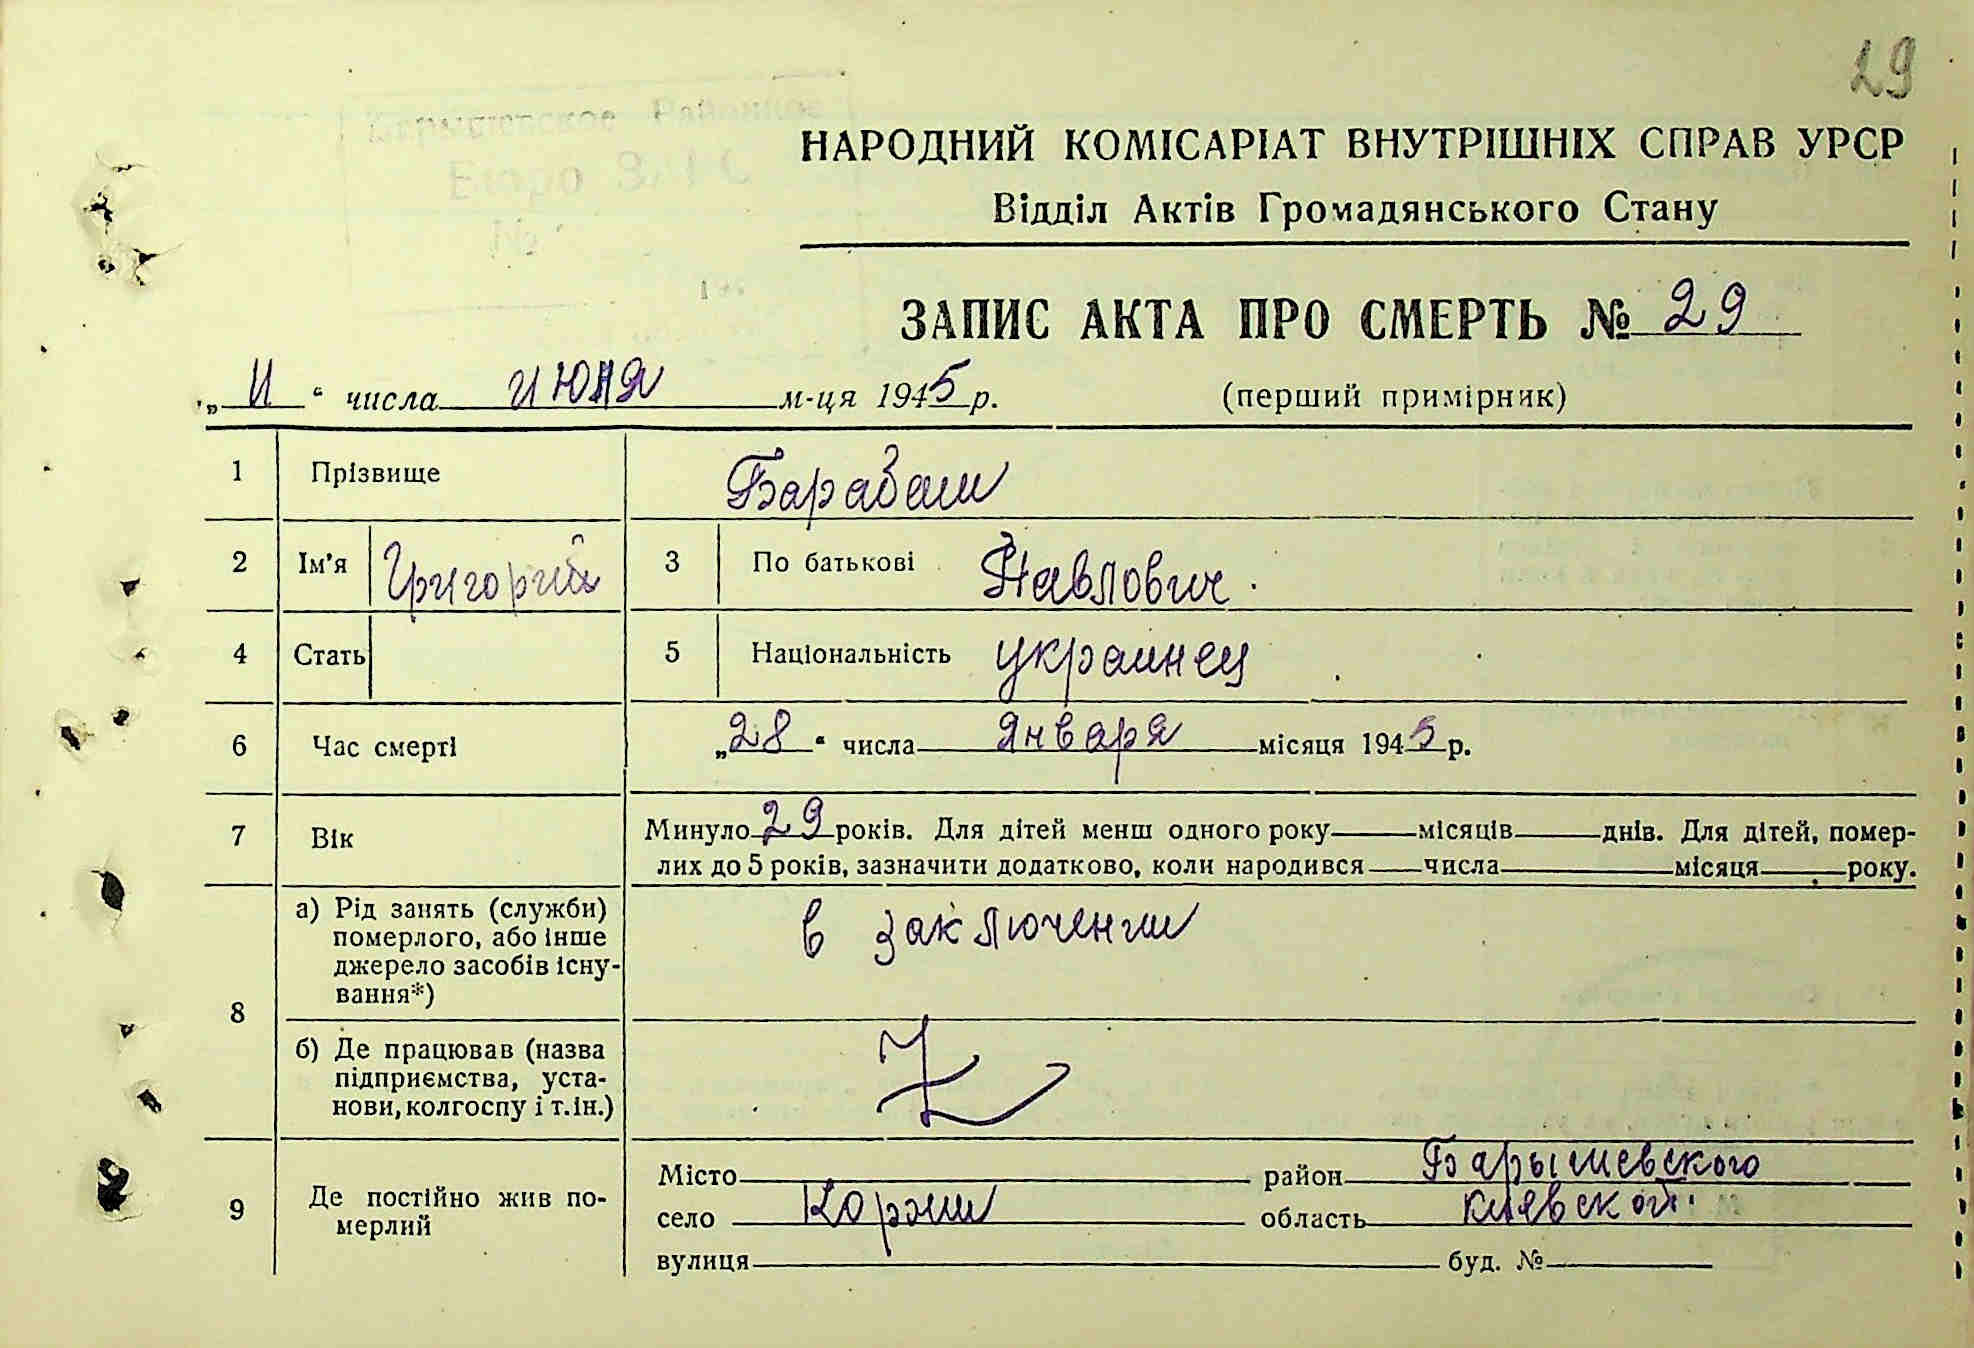 29
Барышевское Районное
Бюро ЗАГС
№
НАРОДНИЙ КОМІСАРІАТ ВНУТРІШНІХ СПРАВ УРСР
Відділ Актів Громадянського Стану
ЗАПИС АКТА ПРО СМЕРТЬ № 29
„11“ числа июля м-ця 1945 р. (перший примірник)
1 Прізвище Барабаш
2 Ім’я Григорий 3 По батькові Павлович
4 Стать 5 Національність украинец
6 Час смерті „28“ числа января місяця 1945 р.
7 Вік Минуло 29 років. Для дітей менш одного року місяців днів. Для дітей, помер-
лих до 5 років, зазначити додатково, коли народився числа місяця року.
8 а) Рід занять (служби) померлого, або інше джерело засобів існу-вання*) в заключении
б) Де працював (назва підприємства, уста-нови, колгоспу і т. ін.)
9 Де постійно жив по-мерлий Місто район Барышевского
село Коржи область Киевской
вулиця буд. №